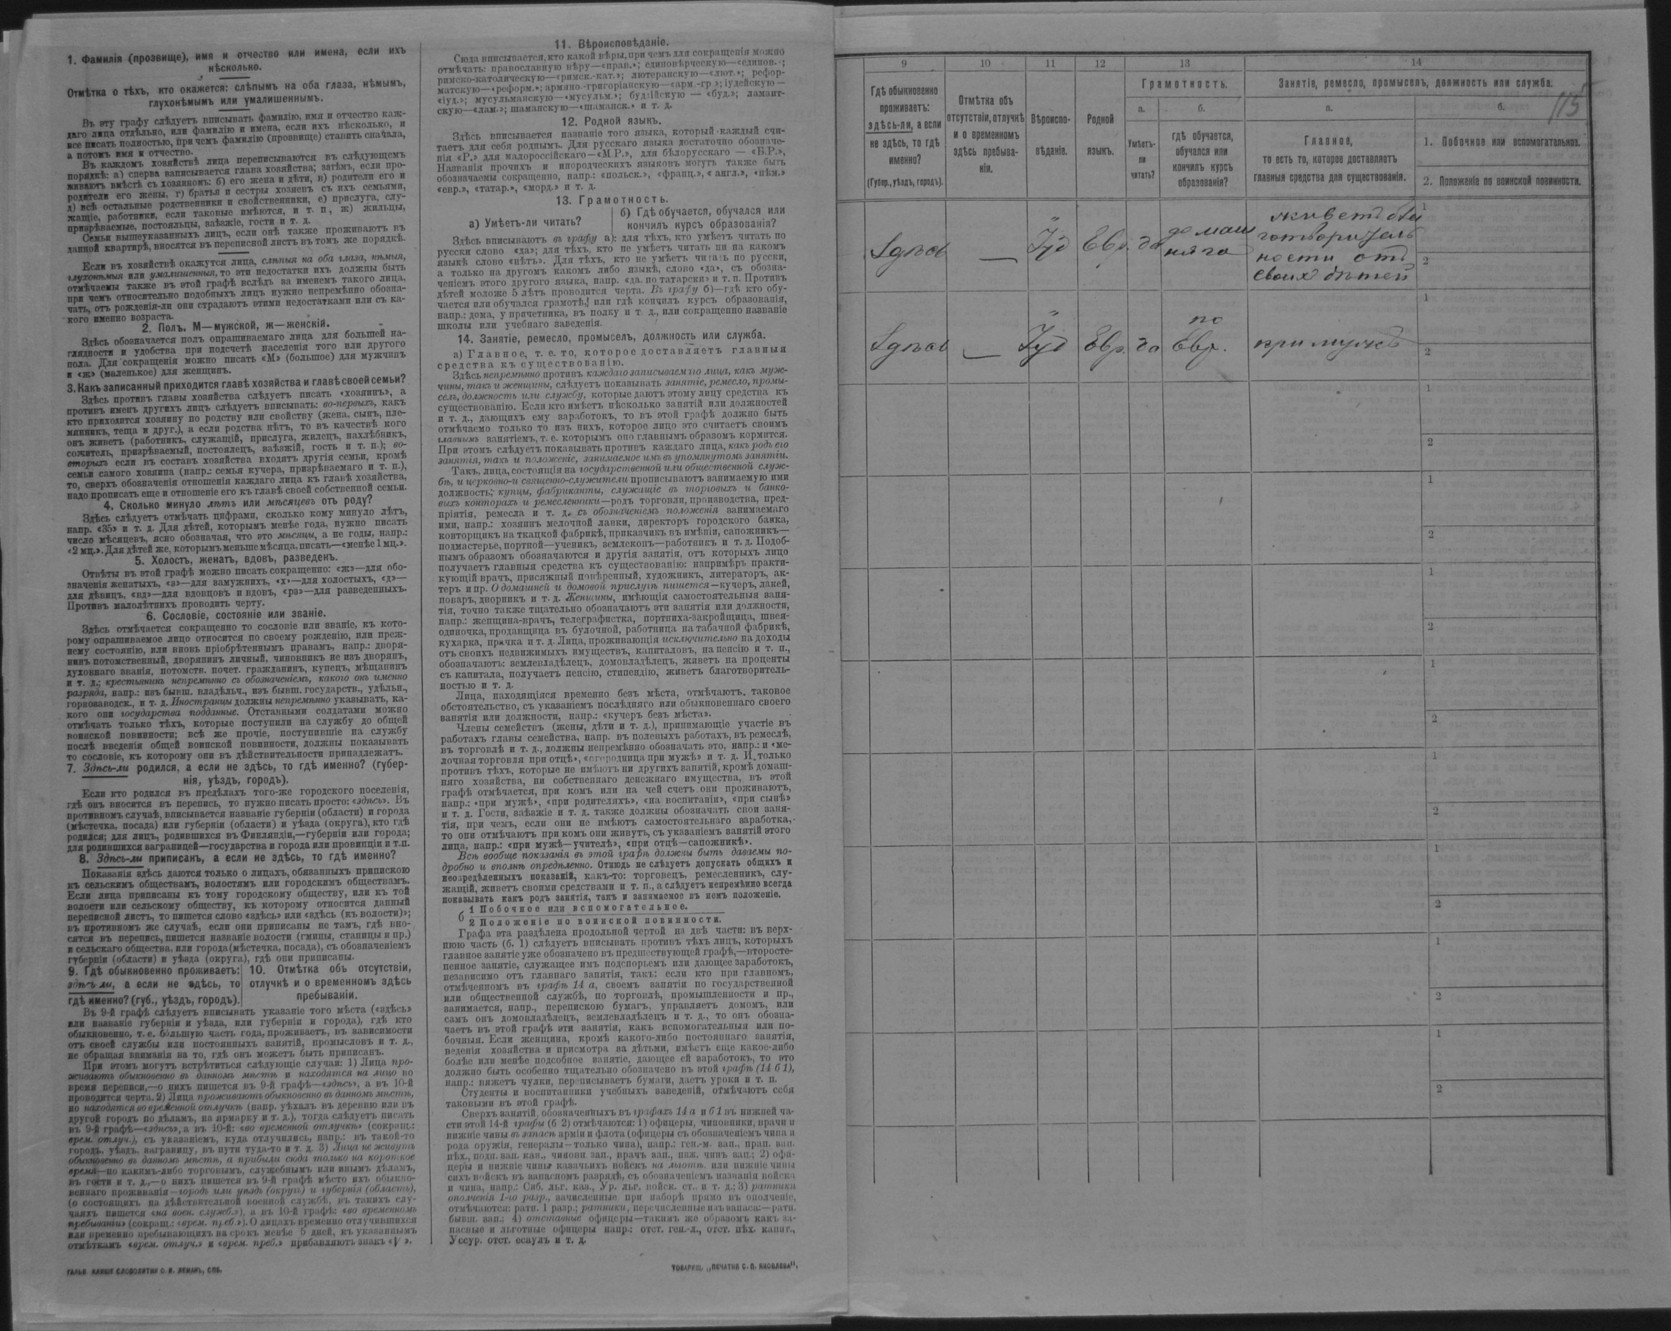 1. Фамилія (прозвище), имя и отчество или имена, если ихъ
нѣсколько.
Отмѣтка о тѣхъ, кто окажется: слѣпымъ на оба глаза, нѣмымъ,
глухонѣмымъ или умалишеннымъ.
Въ эту графу слѣдуетъ вписывать фамилію, имя и отчество каж-
даго лица отдѣльно, или фамилію и имена, если ихъ нѣсколько, и
все писать полностью, при чемъ фамилію (прозвище) ставить сначала,
а потомъ имя и отчество.
Въ каждомъ хозяйствѣ лица переписываются въ слѣдующемъ
порядкѣ: а) сперва записывается глава хозяйства; затѣмъ, если про-
живаютъ вмѣстѣ съ хозяиномъ: б) его жена и дѣти, в) родители его и
родители его жены, г) братья и сестры хозяевъ съ ихъ семьями,
д) всѣ остальные родственники и свойственники, е) прислуга, слу-
жащіе, работники, если таковые имѣются, и т. п., ж) жильцы,
призрѣваемые, постояльцы, заѣзжіе, гости и т. д.
Семьи вышеуказанныхъ лицъ, если онѣ также проживаютъ въ
данной квартирѣ, вносятся въ переписной листъ въ томъ же порядкѣ.
Если въ хозяйствѣ окажутся лица, слѣпыя на оба глаза, нѣмыя,
глухонѣмыя или умалишенныя, то эти недостатки ихъ должны быть
отмѣчаемы также въ этой графѣ вслѣдъ за именемъ такого лица,
при чемъ относительно подобныхъ лицъ нужно непремѣнно обозна-
чать, отъ рожденія-ли они страдаютъ этими недостатками или съ ка-
кого именно возраста.
2. Полъ. М—мужской, ж—женскій.
Здѣсь обозначается полъ опрашиваемаго лица для большей на-
глядности и удобства при подсчетѣ населенія того или другого
пола. Для сокращенія можно писать «М» (большое) для мужчинъ
и «ж» (маленькое) для женщинъ.
3. Какъ записанный приходится главѣ хозяйства и главѣ своей семьи?
Здѣсь противъ главы хозяйства слѣдуетъ писать «хозяинъ», а
противъ именъ другихъ лицъ слѣдуетъ вписывать: во-первыхъ, какъ
кто приходится хозяину по родству или свойству (жена, сынъ, пле-
мянникъ, теща и друг.), а если родства нѣтъ, то въ качествѣ кого
онъ живетъ (работникъ, служащій, прислуга, жилецъ, нахлѣбникъ,
сожитель, призрѣваемый, постоялецъ, заѣзжій, гость и т. п.); во-
вторыхъ если въ составъ хозяйства входятъ другія семьи, кромѣ
семьи самого хозяина (напр.: семья кучера, призрѣваемаго и т. п.),
то, сверхъ обозначенія отношенія каждаго лица къ главѣ хозяйства,
надо прописать еще и отношеніе его къ главѣ своей собственной семьи.
4. Сколько минуло лѣтъ или мѣсяцевъ отъ роду?
Здѣсь слѣдуетъ отмѣчать цифрами, сколько кому минуло лѣтъ,
напр. «35» и т. д. Для дѣтей, которымъ менѣе года, нужно писать
число мѣсяцевъ, ясно обозначая, что это мѣсяцы, а не годы, напр.:
«2 мц.». Для дѣтей же, которымъ меньше мѣсяца, писать—«менѣе 1 мц.».
5. Холостъ, женатъ, вдовъ, разведенъ.
Отвѣты въ этой графѣ можно писать сокращенно: «ж»—для обо-
значенія женатыхъ, «з»—для замужнихъ, «х»—для холостыхъ, «д»—
для дѣвицъ, «вд»—для вдовцовъ и вдовъ, «рз»—для разведенныхъ.
Противъ малолѣтнихъ проводить черту.
6. Сословіе, состояніе или званіе.
Здѣсь отмѣчается сокращенно то сословіе или званіе, къ кото-
рому опрашиваемое лицо относится по своему рожденію, или преж-
нему состоянію, или вновь пріобрѣтеннымъ правамъ, напр.: дворя-
нинъ потомственный, дворянинъ личный, чиновникъ не изъ дворянъ,
духовнаго званія, потомств. почет. гражданинъ, купецъ, мѣщанинъ
и т. д.; крестьянинъ непремѣнно съ обозначеніемъ, какого онъ именно
разряда, напр.: изъ бывш. владѣльч., изъ бывш. государств., удѣльн.,
горнозаводск., и т. д. Иностранцы должны непремѣнно указывать, ка-
кого они государства подданные. Отставными солдатами можно
отмѣчать только тѣхъ, которые поступили на службу до общей
воинской повинности; всѣ же прочіе, поступившіе на службу
послѣ введенія общей воинской повинности, должны показывать
то сословіе, къ которому они въ дѣйствительности принадлежатъ.
7. Здѣсь-ли родился, а если не здѣсь, то гдѣ именно? (губер-
нія, уѣздъ, городъ).
Если кто родился въ предѣлахъ того-же городского поселенія,
гдѣ онъ вносится въ перепись, то нужно писать просто: «здѣсь». Въ
противномъ случаѣ, вписывается названіе губерніи (области) и города
(мѣстечка, посада) или губерніи (области) и уѣзда (округа), кто гдѣ
родился; для лицъ, родившихся въ Финляндіи,—губерніи или города;
для родившихся заграницей—государства и города или провинціи и т.п.
8. Здѣсь-ли приписанъ, а если не здѣсь, то гдѣ именно?
Показанія здѣсь даются только о лицахъ, обязанныхъ припискою
къ сельскимъ обществамъ, волостямъ или городскимъ обществамъ.
Если лица приписаны къ тому городскому обществу, или къ той
волости или сельскому обществу, къ которому относится данный
переписной листъ, то пишется слово «здѣсь» или «здѣсь (къ волости)»;
въ противномъ же случаѣ, если они приписаны не тамъ, гдѣ вно-
сятся въ перепись, пишется названіе волости (гмины, станицы и пр.)
и сельскаго общества, или города (мѣстечка, посада), съ обозначеніемъ
губерніи (области) и уѣзда (округа), гдѣ они приписаны.
9. Гдѣ обыкновенно проживаетъ:
здѣсь-ли, а если не здѣсь, то
гдѣ именно? (губ., уѣздъ, городъ).
10. Отмѣтка объ отсутствіи,
отлучкѣ и о временномъ здѣсь
пребываніи.
Въ 9-й графѣ слѣдуетъ вписывать указаніе того мѣста («здѣсь»
или названіе губерніи и уѣзда, или губерніи и города), гдѣ кто
обыкновенно, т. е. большую часть года, проживаетъ, въ зависимости
отъ своей службы или постоянныхъ занятій, промысловъ и т. д.,
не обращая вниманія на то, гдѣ онъ можетъ быть приписанъ.
При этомъ могутъ встрѣтиться слѣдующіе случаи: 1) Лица про-
живаютъ обыкновенно въ данномъ мѣстѣ и находятся на лицо во
время переписи,—о нихъ пишется въ 9-й графѣ—«здѣсь», а въ 10-й
проводится черта. 2) Лица проживаютъ обыкновенно въ данномъ мѣстѣ,
но находятся во временной отлучкѣ (напр. уѣхалъ въ деревню или въ
другой городъ по дѣламъ, на ярмарку и т. д.), тогда слѣдуетъ писать
въ 9-й графѣ—«здѣсь», а въ 10-й: «во временной отлучкѣ» (сокращ.:
врем. отлуч.), съ указаніемъ, куда отлучились, напр.: въ такой-то
городъ, уѣздъ, заграницу, въ пути туда-то и т. д. 3) Лица не живутъ
обыкновенно въ данномъ мѣстѣ, а прибыли сюда только на короткое
время—по какимъ-либо торговымъ, служебнымъ или инымъ дѣламъ,
въ гости и т. д.,—о нихъ пишется въ 9-й графѣ мѣсто ихъ обыкно-
веннаго проживанія—городъ или уѣздъ (округъ) и губернія (область),
(о состоящихъ на дѣйствительной военной службѣ, въ такихъ слу-
чаяхъ пишется «на воен. службѣ»), а въ 10-й графѣ: «во временномъ
пребываніи» (сокращ.: «врем. преб.»). О лицахъ временно отлучившихся
или временно пребывающихъ на срокъ менѣе 5 дней, къ указаннымъ
отмѣткамъ «врем. отлуч.» и «врем. преб.» прибавляютъ знакъ «V».
11. Вѣроисповѣданіе.
Сюда вписывается, кто какой вѣры, при чемъ для сокращенія можно
отмѣчать: православную вѣру—«прав.»; единовѣрческую—«единов.»;
римско-католическую—«римск.-кат.»; лютеранскую—«лют.»; рефор-
матскую—«реформ.»; армяно-григоріанскую—«арм.-гр.»; іудейскую—
«іуд.»; мусульманскую—«мусульм.»; буддійскую — «буд.»; ламаит-
скую—«лам.»; шаманскую—«шаманск.» и т. д.
12. Родной языкъ.
Здѣсь вписывается названіе того языка, который каждый счи-
таетъ для себя роднымъ. Для русскаго языка достаточно обозначе-
нія «Р.» для малороссійскаго—«М.Р.», для бѣлорусскаго — «Б.Р.»,
Названія прочихъ и инородческихъ языковъ могутъ также быть
обозначаемы сокращенно, напр.: «польск.», «франц.», «англ.», «нѣм.»
«евр.», «татар.», «морд.» и т. д.
13. Грамотность.
а) Умѣетъ-ли читать?
б) Гдѣ обучается, обучался или
кончилъ курсъ образованія?
Здѣсь вписываютъ въ графу а): для тѣхъ, кто умѣетъ читать по
русски слово «да»; для тѣхъ, кто не умѣетъ читать ни на какомъ
языкѣ слово «нѣтъ». Для тѣхъ, кто не умѣетъ читать по русски,
а только на другомъ какомъ либо языкѣ, слово «да», съ обозна-
ченіемъ этого другого языка, напр. «да, по татарски» и т. п. Противъ
дѣтей моложе 5 лѣтъ проводится черта. Въ графу б)—гдѣ кто обу-
чается или обучался грамотѣ, или гдѣ кончилъ курсъ образованія,
напр.: дома, у причетника, въ полку и т. д., или сокращенно названіе
школы или учебнаго заведенія.
14. Занятіе, ремесло, промыселъ, должность или служба.
а) Главное, т. е. то, которое доставляетъ главныя
средства къ существованію.
Здѣсь непремѣнно противъ каждаго записываемаго лица, какъ муж-
чины, такъ и женщины, слѣдуетъ показывать занятіе, ремесло, промы-
селъ, должность или службу, которые даютъ этому лицу средства къ
существованію. Если кто имѣетъ нѣсколько занятій или должностей
и т. д., дающихъ ему заработокъ, то въ этой графѣ должно быть
отмѣчаемо только то изъ нихъ, которое лицо это считаетъ своимъ
главнымъ занятіемъ, т. е. которымъ оно главнымъ образомъ кормится.
При этомъ слѣдуетъ показывать противъ каждаго лица, какъ родъ его
занятія, такъ и положеніе, занимаемое имъ въ упомянутомъ занятіи.
Такъ, лица, состоящія на государственной или общественной служ-
бѣ, и церковно-и священно-служители прописываютъ занимаемую ими
должность; купцы, фабриканты, служащіе въ торговыхъ и банко-
выхъ конторахъ и ремесленники—родъ торговли, производства, пред-
пріятія, ремесла и т. д. съ обозначеніемъ положенія занимаемаго
ими, напр.: хозяинъ мелочной лавки, директоръ городского банка,
конторщикъ на ткацкой фабрикѣ, приказчикъ въ имѣніи, сапожникъ—
подмастерье, портной—ученикъ, землекопъ—работникъ и т. д. Подоб-
нымъ образомъ обозначаются и другія занятія, отъ которыхъ лицо
получаетъ главныя средства къ существованію: напримѣръ практи-
кующій врачъ, присяжный повѣренный, художникъ, литераторъ, ак-
теръ и пр. О домашней и домовой прислугѣ пишется—кучеръ, лакей,
поваръ, дворникъ и т. д. Женщины, имѣющія самостоятельныя заня-
тія, точно также тщательно обозначаютъ эти занятія или должности,
напр.: женщина-врачъ, телеграфистка, портниха-закройщица, швея-
одиночка, продавщица въ булочной, работница на табачной фабрикѣ,
кухарка, прачка и т. д. Лица, проживающія исключительно на доходы
отъ своихъ недвижимыхъ имуществъ, капиталовъ, на пенсію и т. п.,
обозначаютъ: землевладѣлецъ, домовладѣлецъ, живетъ на проценты
съ капитала, получаетъ пенсію, стипендію, живетъ благотворитель-
ностью и т. д.
Лица, находящіяся временно безъ мѣста, отмѣчаютъ, таковое
обстоятельство, съ указаніемъ послѣдняго или обыкновеннаго своего
занятія или должности, напр.: «кучеръ безъ мѣста».
Члены семействъ (жены, дѣти и т. д.), принимающіе участіе въ
работахъ главы семейства, напр. въ полевыхъ работахъ, въ ремеслѣ,
въ торговлѣ и т. д., должны непремѣнно обозначать это, напр.: и «ме-
лочная торговля при отцѣ», «огородница при мужѣ» и т. д. И только
противъ тѣхъ, которые не имѣютъ ни другихъ занятій, кромѣ домаш-
няго хозяйства, ни собственнаго денежнаго имущества, въ этой
графѣ отмѣчается, при комъ или на чей счетъ они проживаютъ,
напр.: «при мужѣ», «при родителяхъ», «на воспитаніи», «при сынѣ»
и т. д. Гости, заѣзжіе и т. д. также должны обозначать свои заня-
тія, при чемъ, если они не имѣютъ самостоятельнаго заработка,
то они отмѣчаютъ при комъ они живутъ, съ указаніемъ занятій этого
лица, напр.: «при мужѣ—учителѣ», «при отцѣ—сапожникѣ».
Всѣ вообще показанія въ этой графѣ должны быть даваемы по-
дробно и вполнѣ опредѣленно. Отнюдь не слѣдуетъ допускать общихъ и
неопредѣленныхъ показаній, какъ-то: торговецъ, ремесленникъ, слу-
жащій, живетъ своими средствами и т. п., а слѣдуетъ непремѣнно всегда
показывать какъ родъ занятія, такъ и занимаемое въ немъ положеніе.
б 1 Побочное или вспомогательное.
2 Положеніе по воинской повинности.
Графа эта раздѣлена продольной чертой на двѣ части: въ верх-
нюю часть (б. 1) слѣдуетъ вписывать противъ тѣхъ лицъ, которыхъ
главное занятіе уже обозначено въ предшествующей графѣ,—второсте-
пенное занятіе, служащее имъ подспорьемъ или дающее заработокъ,
независимо отъ главнаго занятія, такъ: если кто при главномъ,
отмѣченномъ въ графѣ 14 а, своемъ занятіи по государственной
или общественной службѣ, по торговлѣ, промышленности и пр.,
занимается, напр., перепискою бумагъ, управляетъ домомъ, или
самъ онъ домовладѣлецъ, землевладѣлецъ и т. д., то онъ обозна-
чаетъ въ этой графѣ эти занятія, какъ вспомогательныя или по-
бочныя. Если женщина, кромѣ какого-либо постояннаго занятія,
веденія хозяйства и присмотра за дѣтьми, имѣетъ еще какое-либо
болѣе или менѣе подсобное занятіе, дающее ей заработокъ, то это
должно быть особенно тщательно обозначено въ этой графѣ (14 б 1),
напр.: вяжетъ чулки, переписываетъ бумаги, даетъ уроки и т. п.
Студенты и воспитанники учебныхъ заведеній, отмѣчаютъ себя
таковыми въ этой графѣ.
Сверхъ занятій, обозначенныхъ въ графахъ 14 а и б 1 въ нижней ча-
сти этой 14-й графы (б 2) отмѣчаются: 1) офицеры, чиновники, врачи и
нижніе чины въ запасѣ арміи и флота (офицеры съ обозначеніемъ чина и
рода оружія, генералы—только чина), напр.: ген.-м. зап., прап. зап.
пѣх., полк. зап. кав., чиновн. зап., врачъ зап., ниж. чинъ зап.; 2) офи-
церы и нижніе чины казачьихъ войскъ на льготѣ, или нижніе чины
сихъ войскъ въ запасномъ разрядѣ, съ обозначеніемъ названія войска
и чина, напр.: Сиб. льг. каз., Ур. льг. войск. ст., и т. д.; 3) ратники
ополченія 1-го разр., зачисленные при наборѣ прямо въ ополченіе,
отмѣчаются: ратн. 1 разр.; ратники, перечисленные изъ запаса:—ратн.
бывш. зап.; 4) отставные офицеры—такимъ же образомъ какъ за-
пасные и льготные офицеры напр.: отст. ген.-л., отст. пѣх. капит.,
Уссур. отст. есаулъ и т. д.
ТОВАРИЩ. „ПЕЧАТНЯ С. П. ЯКОВЛЕВА“.
9 10 11 12 13 14
Гдѣ обыкновенно
проживаетъ:
здѣсь-ли, а если
не здѣсь, то гдѣ
именно?
(Губер., уѣздъ, городъ).
Отмѣтка объ
отсутствіи, отлучкѣ
и о временномъ
здѣсь пребыва-
ніи.
Вѣроиспо-
вѣданіе.
Родной
языкъ.
Грамотность.
а.
Умѣетъ-
ли
читать?
б.
гдѣ обучается,
обучался или
кончилъ курсъ
образованія?
Занятія, ремесло, промыселъ, должность или служба.
а.
Главное,
то есть то, которое доставляетъ
главныя средства для существованія.
б.
115
1. Побочное или вспомогательное.
2. Положеніе по воинской повинности.
Здѣсь — Іуд Евр. да домаш
няго
живетъ бла
готворитель
ности отъ
своихъ дѣтей
1
2
Здѣсь — Іуд Евр. да по
Евр.
при мужѣ
1
2
1
2
1
2
1
2
1
2
1
2
1
2
1
2
1
2